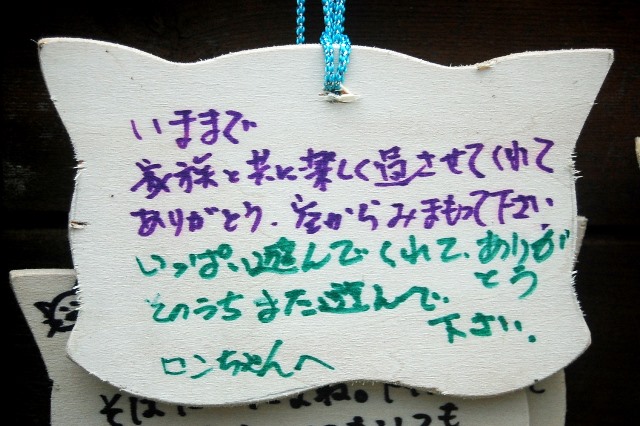 いままで
家族と共に楽しく過させてくれて
ありがとう、空からみまもって下さい
いっぱい遊んでくれて、ありが
とう
そのうちまた遊んで、
下さい。
ロンちゃんへ